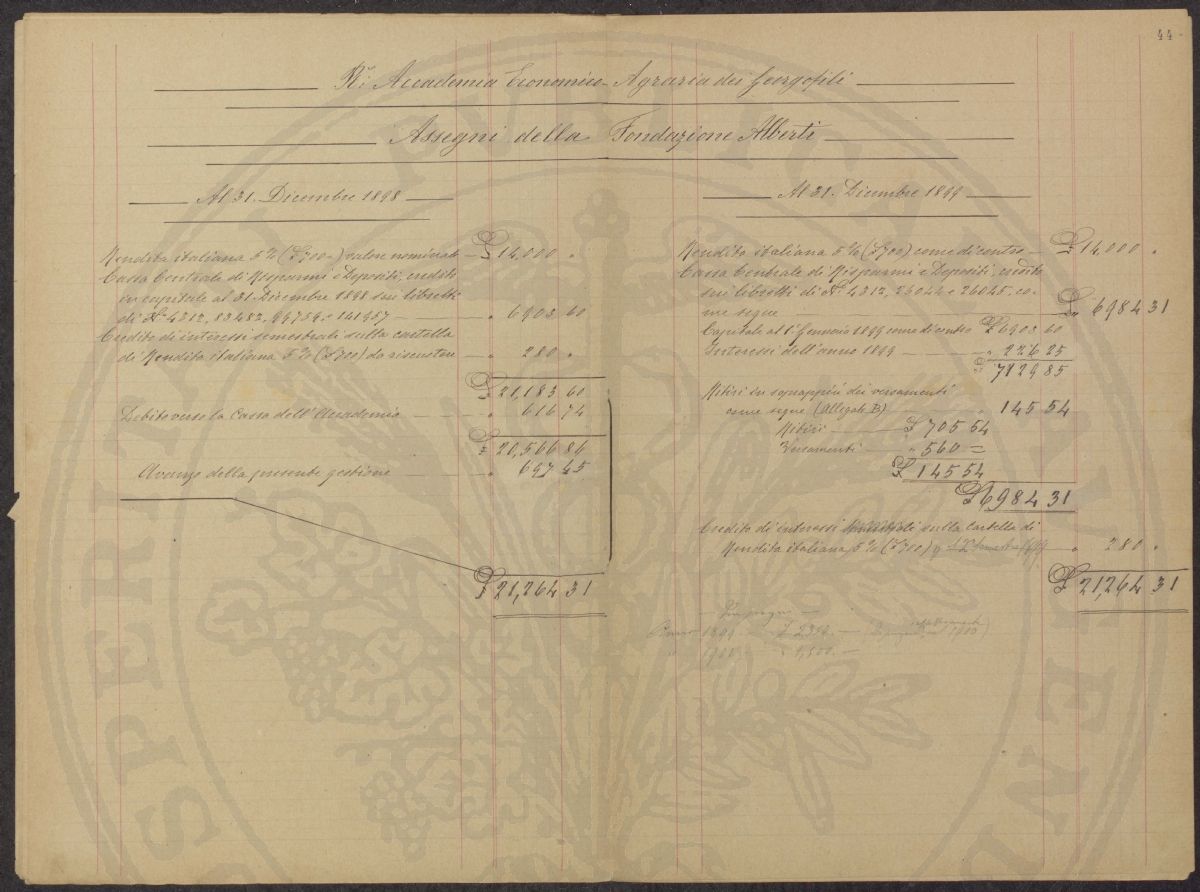 44
R. Accademia Economico-Agraria dei Georgofili
Assegni della Fondazione Alberti
Al 31. Dicembre 1898
Rendita italiana 5% (£ 700.-) valore nominale £ 14,000 "
Cassa Centrale di Risparmi e Depositi, credito
in capitale al 31. Dicembre 1898 sui libretti
di N.i 4312, 83483, 99759 e 141957 " 6903 60
Credito di interessi semestrali sulla cartella
di Rendita italiana 5% (£ 700) da riscuotere " 280 "
£ 21,183 60
Debito verso la Cassa dell'Accademia " 616 74
£ 20,566 86
Avanzo della presente gestione " 697 45
£ 21,264 31
Al 31. Dicembre 1899
Rendita italiana 5% (£ 700) come di contro £ 14,000 "
Cassa Centrale di Risparmi e Depositi, credito
sui libretti di N.i 4312, 26044 e 26045, co-
me segue £ 6984 31
Capitale al 1° Gennaio 1899 come di contro £ 6903 60
Interessi dell'anno 1899 " 226 25
£ 7129 85
Ritiri in soprappiù dei versamenti
come segue (Allegato B) " 145 54
Ritiri £ 705 54
Versamenti " 560 =
£ 145 54
£ 6984 31
Credito di interessi sulla cartella di
Rendita italiana 5% (£ 700) " 280 "
£ 21,264 31
Anno 1899
1900
SPERITATI PVBLICAE